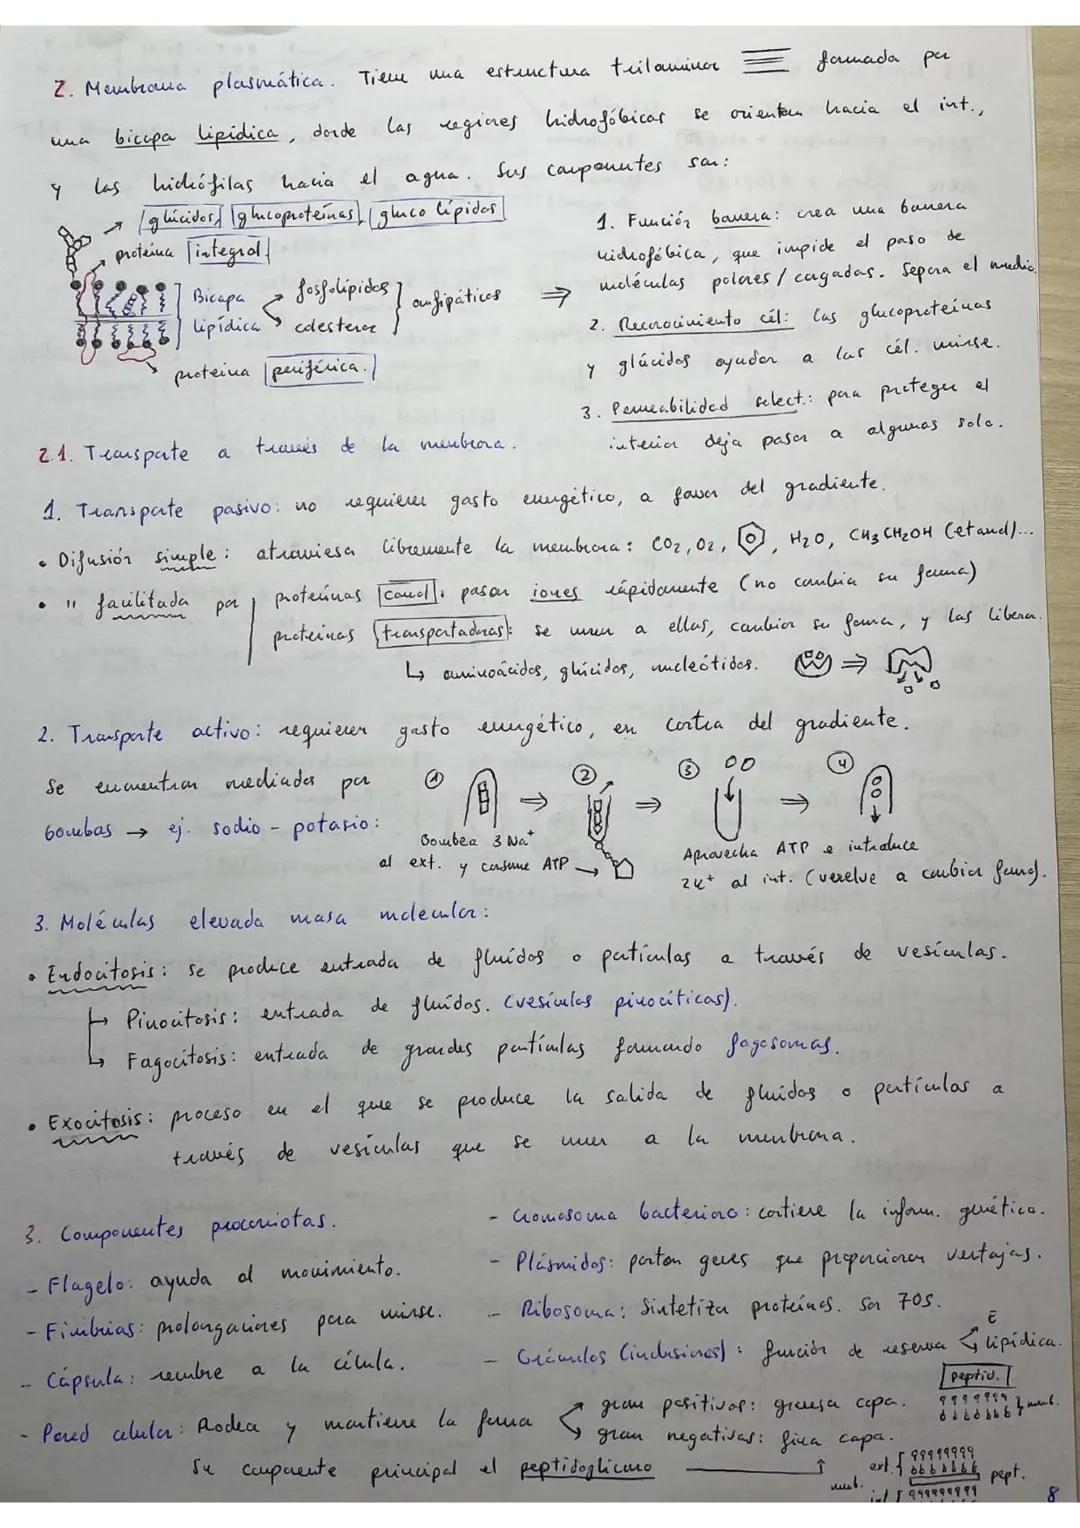 2. Membrana plasmática. Tiene una estructura trilaminar formada por
una bicapa lipídica, donde las regiones hidrofóbicas se orientan hacia el int.,
y las hidrófilas hacia el agua. Sus componentes son:
glúcidos, glucoproteínas, gluco lípidos
proteína integral
Bicapa lipídica
fosfolípidos
colesterol
anfipáticos
proteína periférica.
1. Función barrera: crea una barrera
hidrofóbica, que impide el paso de
moléculas polares / cargadas. Separa el medio.
2. Reconocimiento cél: las glucoproteínas
y glúcidos ayudan a las cél. unirse.
3. Permeabilidad select.: para proteger el
interior deja pasar a algunas solo.
2.1. Transporte a través de la membrana.
1. Transporte pasivo: no requieren gasto energético, a favor del gradiente.
• Difusión simple: atraviesa libremente la membrana: CO2, O2, , H2O, CH3CH2OH (etanol)...
• " facilitada por
proteínas canal: pasan iones rápidamente (no cambia su forma)
proteínas transportadoras: se unen a ellas, cambian su forma, y las liberan.
↳ aminoácidos, glúcidos, nucleótidos.
2. Transporte activo: requieren gasto energético, en contra del gradiente.
Se encuentran mediados por
bombas → ej. sodio - potasio:
1 2 3 4
Bombea 3 Na+
al ext. y consume ATP
Aprovecha ATP e introduce
2K+ al int. (vuelve a cambiar forma).
3. Moléculas elevada masa molecular:
• Endocitosis: se produce entrada de fluídos o partículas a través de vesículas.
↳ Pinocitosis: entrada de fluídos. (vesículas pinocíticas).
↳ Fagocitosis: entrada de grandes partículas formando fagosomas.
• Exocitosis: proceso en el que se produce la salida de fluídos o partículas a
través de vesículas que se unen a la membrana.
3. Componentes procariotas.
- Flagelo: ayuda al movimiento.
- Fimbrias: prolongaciones para unirse.
- Cápsula: recubre a la célula.
- Cromosoma bacteriano: contiene la inform. genética.
- Plásmidos: portan genes que proporcionan ventajas.
- Ribosoma: Sintetiza proteínas. Son 70S.
- Gránulos (inclusiones): función de reserva E
lipídica.
- Pared celular: Rodea y mantiene la forma
gram positivas: gruesa capa.
gram negativas: fina capa.
Su componente principal el peptidoglicano
peptid.
memb.
ext.
pept.
memb.
int
8